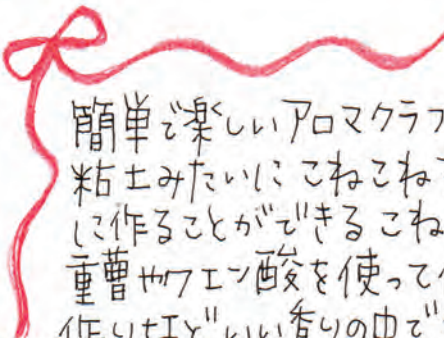 簡単で楽しいアロマクラフ
粘土みたいにこねこね
に作ることができるこね
重曹やクエン酸を使って
作りなど、いい香りの中で